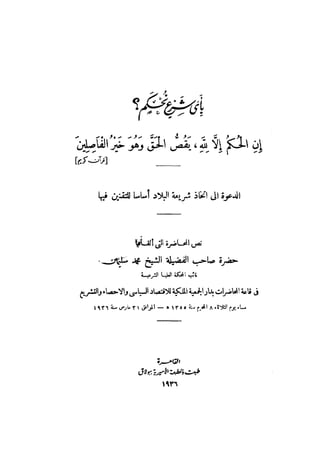 بأى شرع نحكم؟
إن الحكم إلا لله، يقص الحق وهو خير الفاصلين
[قرآن كريم]
الدعوة الى اتخاذ شريعة البلاد أساسا للتقنين فيها
نص المحاضرة التى ألقاها
حضرة صاحب الفضيلة الشيخ محمد سليمان
نائب المحكمة العليا الشرعية
فى قاعة المحاضرات بدار الجمعية الملكية للاقتصاد السياسى والاحصاء والتشريع
مساء يوم الثلاثاء ٨ المحرم سنة ١٣٥٥ ﻫ — الموافق ٣١ مارس سنة ١٩٣٦
القاهرة
طبعت بالمطبعة الأميرية ببولاق
١٩٣٦